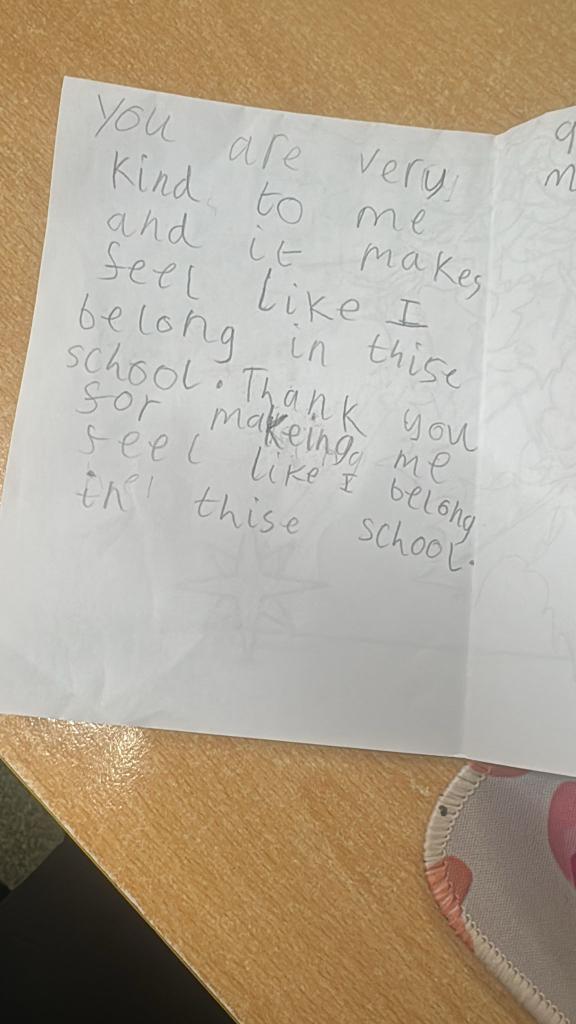 you are very
kind to me
and it makes
feel like I
belong in thise
school. Thank you
for makeing me
feel like I belong
in thise school.